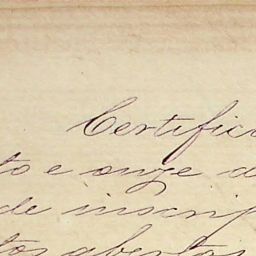 Certific
to e onze d
de inscrip
tos abertos